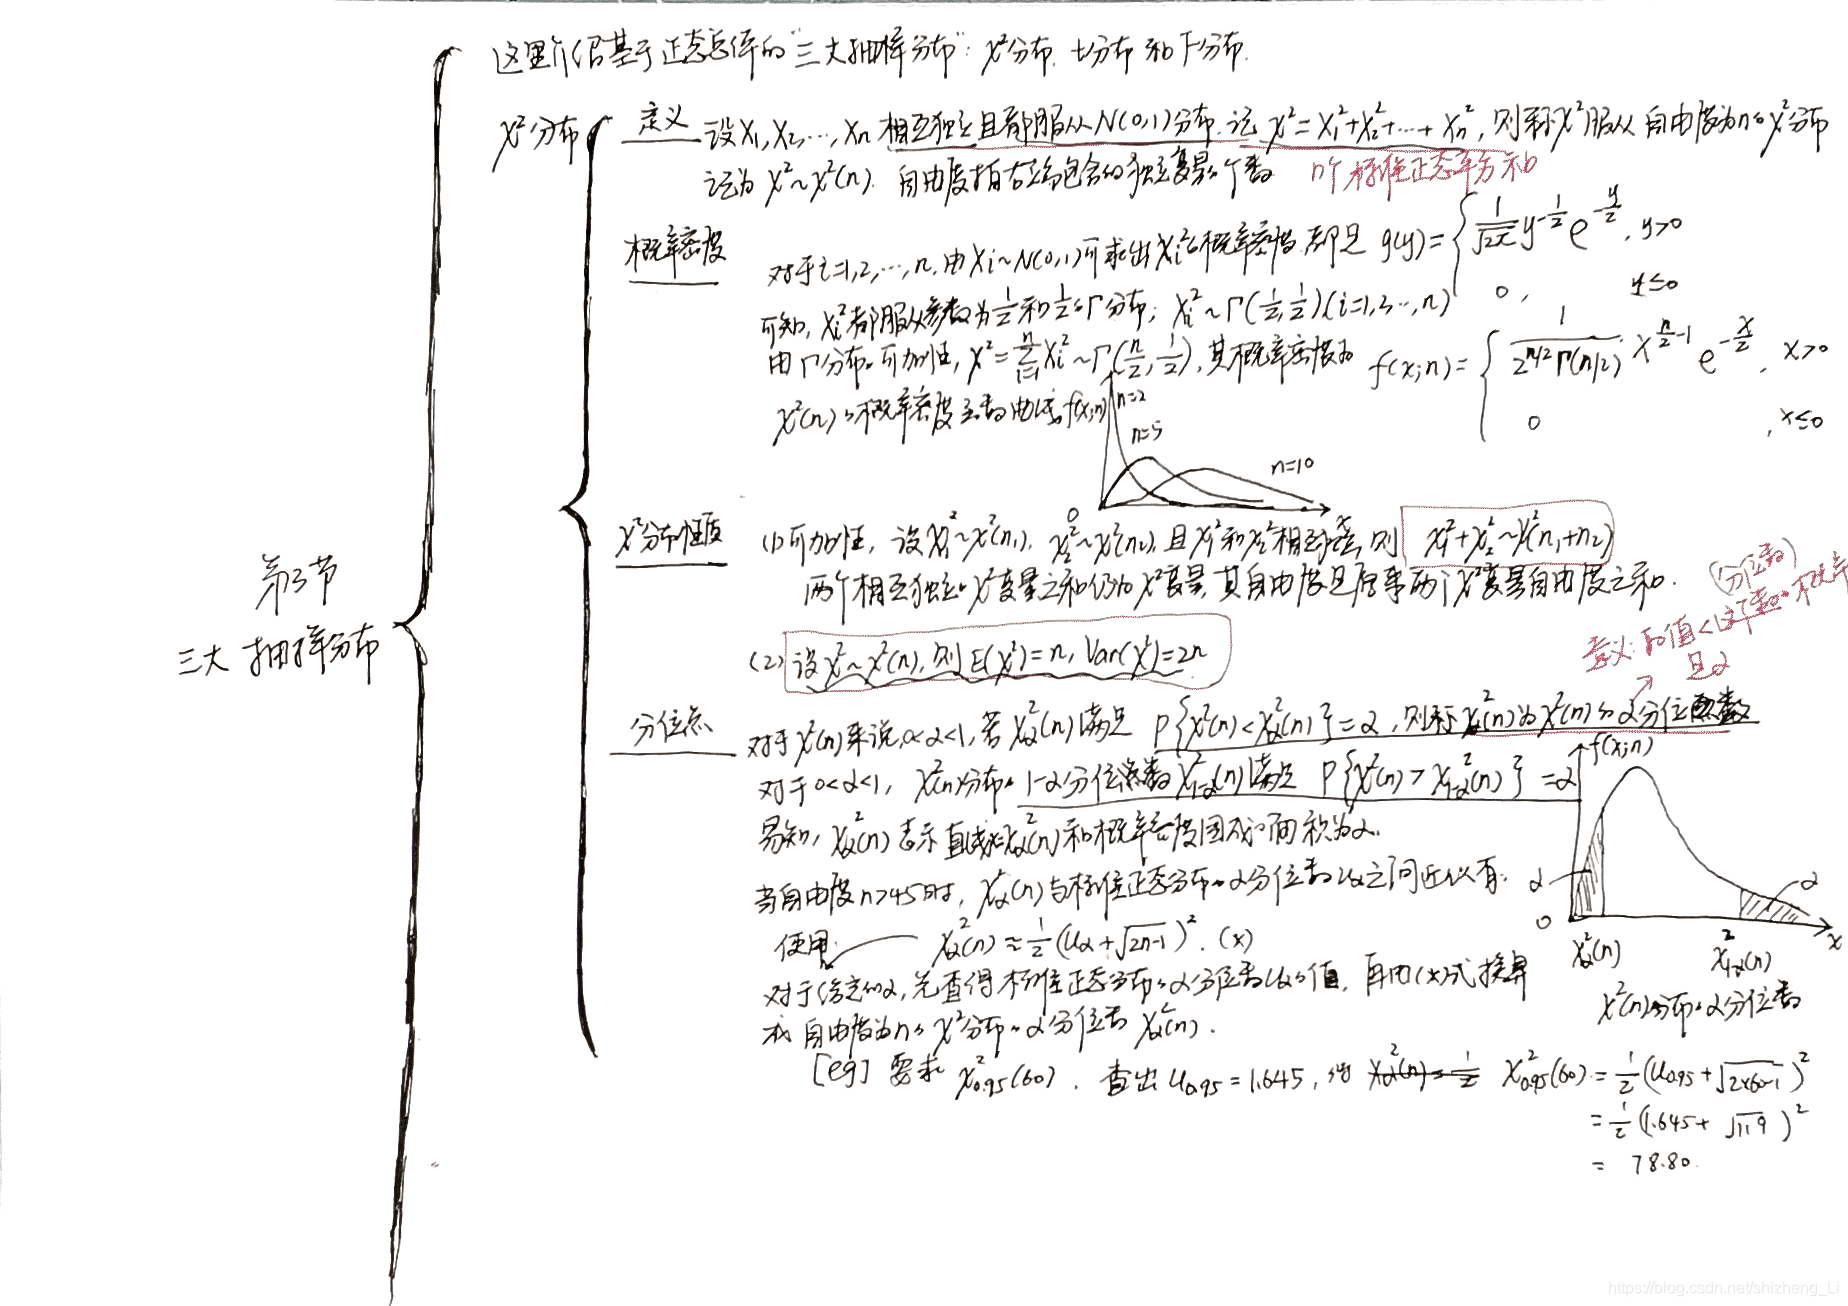 这里介绍基于正态总体的“三大抽样分布”: χ²分布. t分布 和 F分布.
第3节
三大 抽样分布
χ²分布
定义 设X₁, X₂, ..., Xn 相互独立且都服从N(0,1)分布. 记 χ² = X₁²+X₂²+...+Xn², 则称χ²服从 自由度为n的χ²分布
记为 χ²~χ²(n). 自由度指右端包含的独立变量个数 n个标准正态平方和
概率密度
对于i=1,2,...,n. 由Xi~N(0,1)可求出Xi²的概率密度 都是 g(y)= { 1/√2π y^(-1/2) e^(-y/2), y>0
0, y≤0
可知, Xi²都服从参数为1/2和1/2的Γ分布; Xi²~Γ(1/2,1/2)(i=1,2...,n)
由Γ分布的可加性, χ²=∑(i=1→n) Xi² ~Γ(n/2, 1/2), 其概率密度为 f(x;n)= { 1/(2^(n/2) Γ(n/2)) x^(n/2-1) e^(-x/2), x>0
0 , x≤0
χ²(n)的概率密度函数曲线 f(x;n)
n=2
n=5
n=10
0
x
χ²分布性质
(1)可加性, 设χ₁²~χ²(n₁), χ₂²~χ²(n₂), 且χ₁²和χ₂²相互独立, 则 χ₁²+χ₂²~χ²(n₁+n₂)
两个相互独立的χ²变量之和仍为χ²变量, 其自由度是原来两个χ²变量自由度之和.
(2) 设χ²~χ²(n), 则E(χ²)=n, Var(χ²)=2n
(分位数)
是α
分位点
对于χ²(n)来说, 0<α<1, 若χα²(n)满足 P{χ²(n)<χα²(n)}=α, 则称χα²(n)为χ²(n)的α分位数
对于0<α<1, χ²(n)分布的1-α分位数χ²₁₋α(n)满足 P{χ²(n)>χ²₁₋α(n)}=α
易知, χα²(n)表示直线x=χα²(n)和概率密度围成的面积为α.
当自由度n>45时, χα²(n)与标准正态分布的α分位数uα之间近似有:
使用: χα²(n)≈1/2(uα+√2n-1)². (*)
对于给定的α, 先查得标准正态分布的α分位数uα的值, 再由(*)式换算
成 自由度为n的χ²分布的α分位数 χα²(n).
f(x;n)
α
α
0
x
χα²(n)
χ²₁₋α(n)
χ²(n)分布的α分位数
[eg] 要求 χ²₀.₉₅(60). 查出u₀.₉₅=1.645, χ²₀.₉₅(60)=1/2(u₀.₉₅+√2×60-1)²
=1/2(1.645+√119)²
= 78.80.
https://blog.csdn.net/shizheng_Li